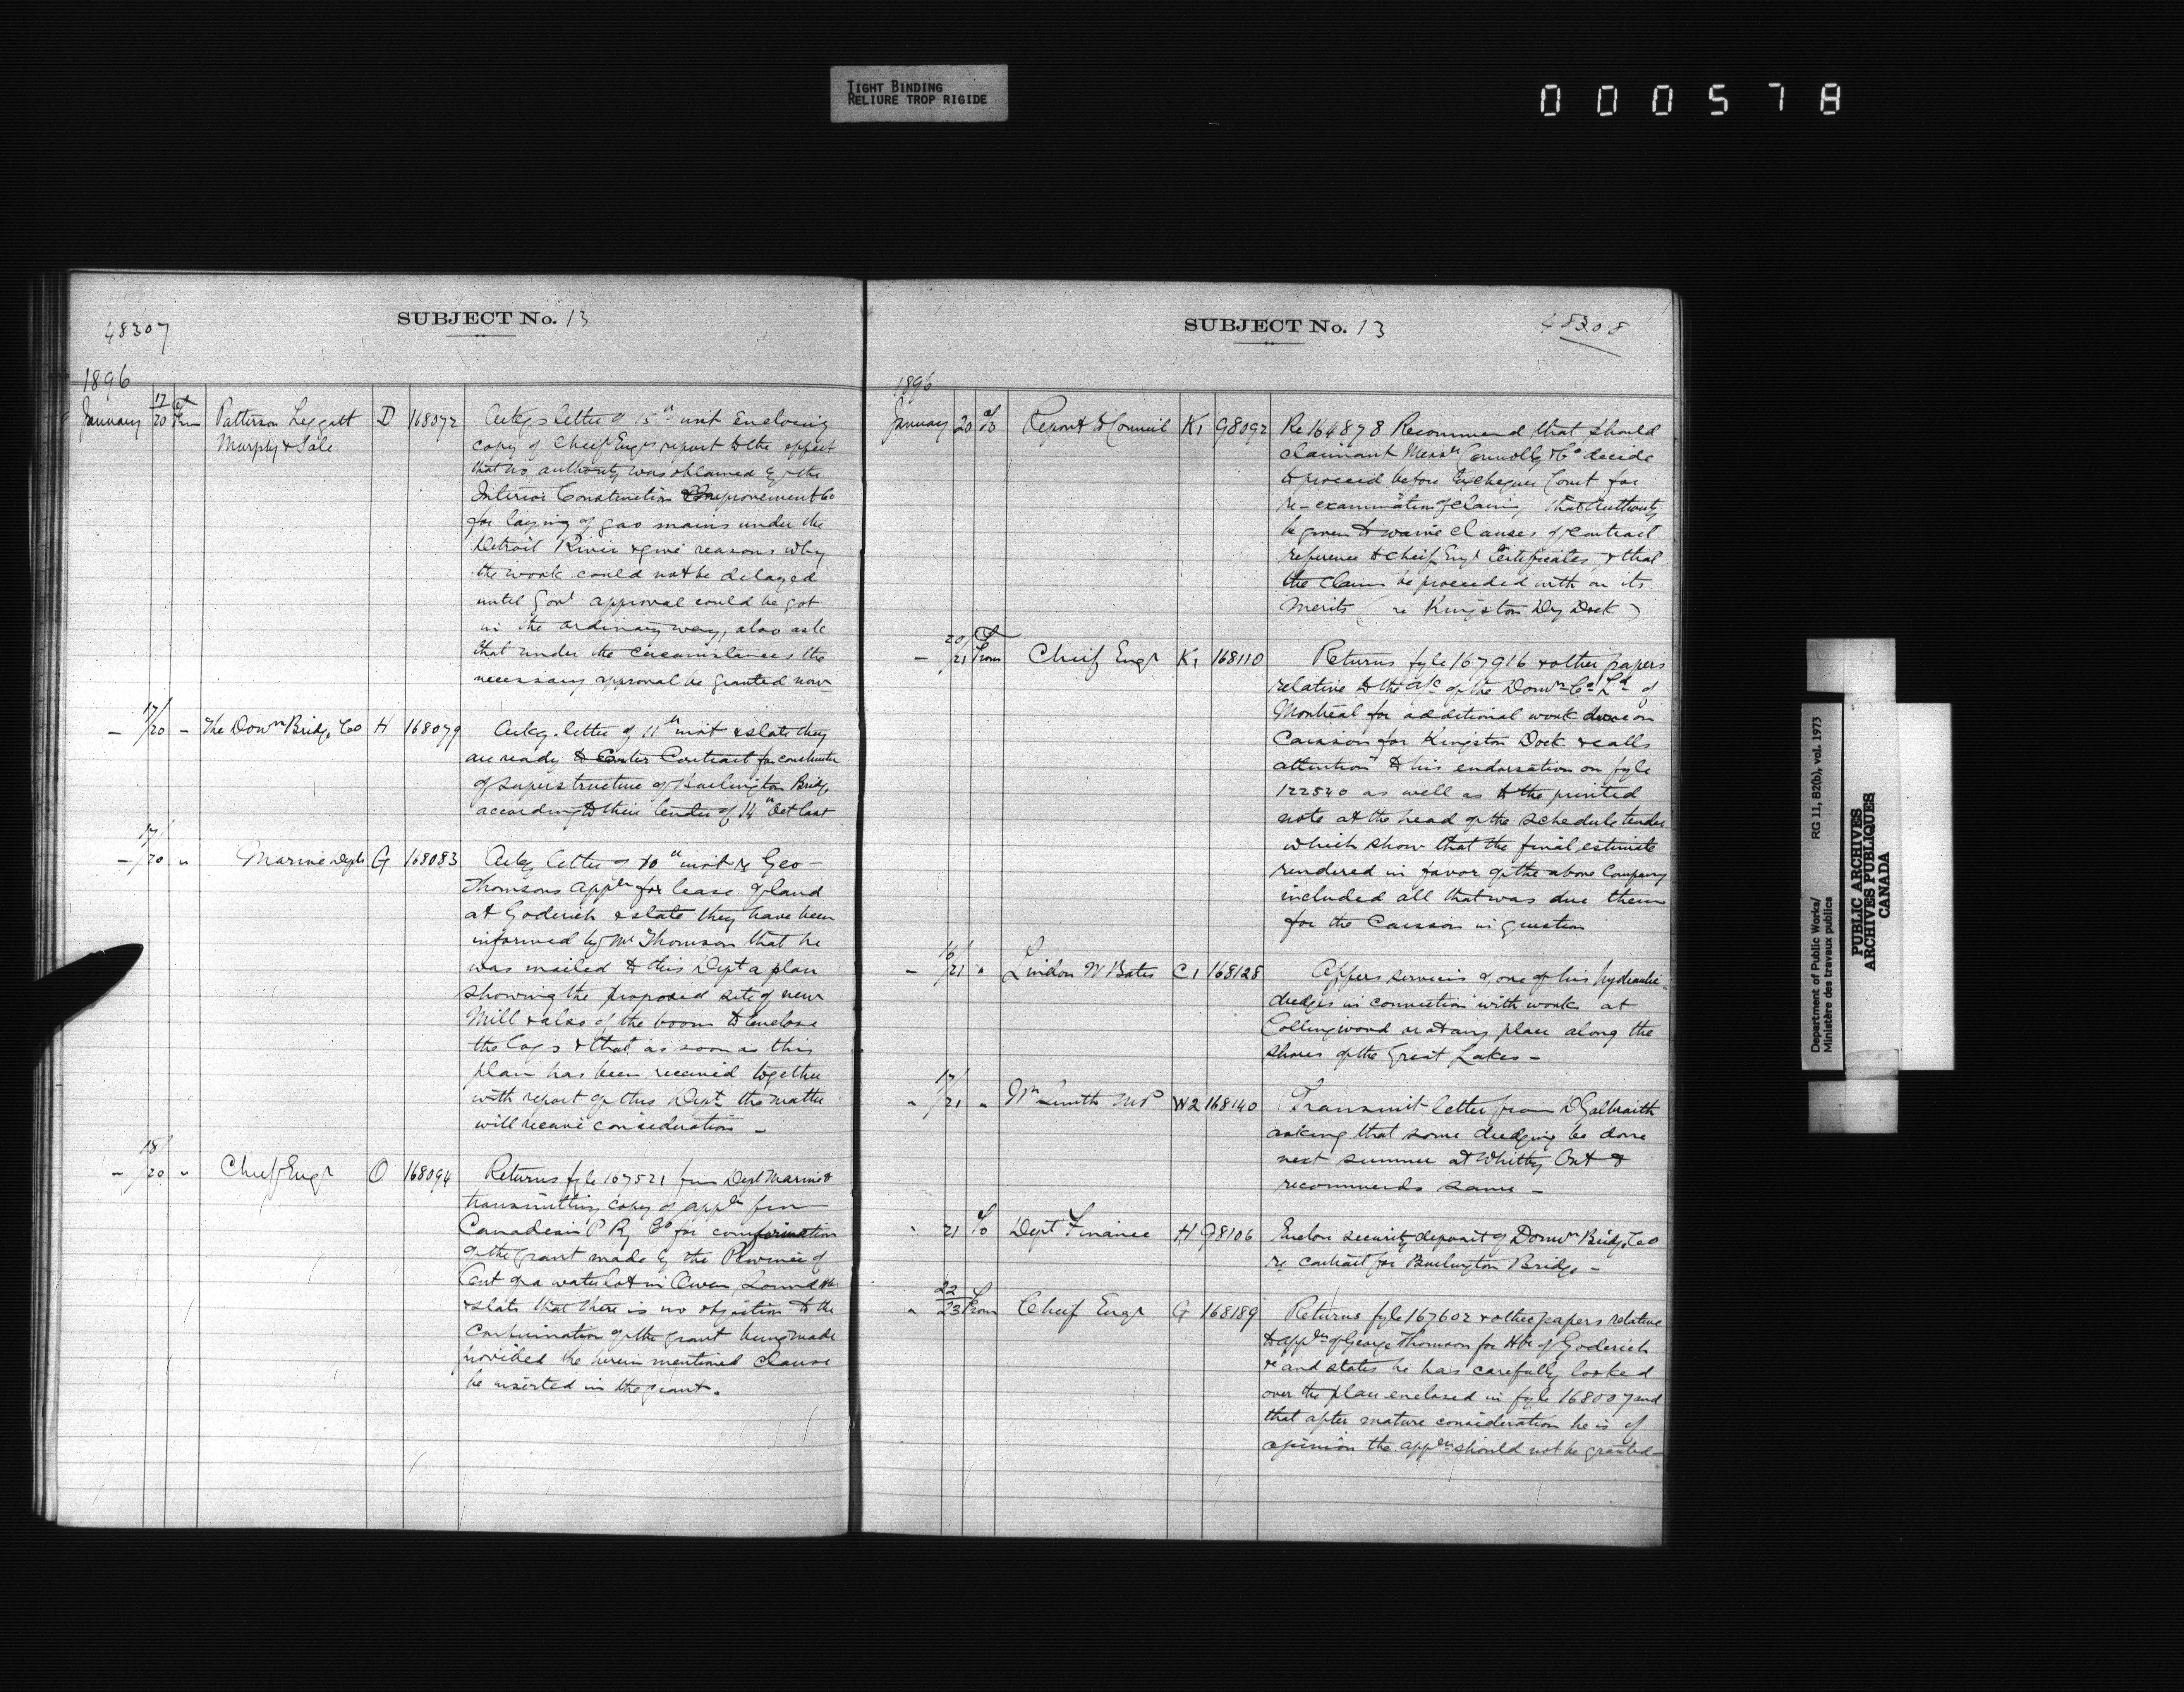 TIGHT BINDING
RELIURE TROP RIGIDE
000578
48307
SUBJECT No. 13
1896
January 17/20 From Patterson Leggatt Murphy & Sale D 168072
Ackgs letter of 15th inst enclosing
copy of Cheif Engrs report to the effect
that no authority was obtained by the
Interior Construction & Improvement Co
for laying of gas mains under the
Detroit River & give reasons why
the work could not be delayed
until Govt approval could be got
in the ordinary way, also ask
that under the circumstances the
necessary approval be granted now
— 17/20 – The Domn Bridge Co H 168079
Ackg. letter of 11th inst & state they
are ready to Enter Contract for construction
of superstructure of Burlington Bridge
according to their tender of 14th Oct last
— 17/20 " Marine Dept G 168083
Ackg letter of 10th inst re Geo
Thomsons appln for lease of land
at Goderich & state they have been
informed by Mr Thomson that he
was mailed to this Dept a plan
showing the proposed site of new
Mill & also of the boom to enclose
the logs & that as soon as this
plan has been received together
with report of this Dept the matter
will receive consideration —
" 18/20 " Cheif Engr O 168094
Returns fyle 167521 from Dept Marine &
transmitting copy of appln from
Canadian P Ry Co for confirmation
of the grant made by the Province of
Ont of a water lot in Owen Sound Hbr
& state that there is no objection to the
confirmation of the grant being made
provided the herein mentioned clause
be inserted in the grant.
SUBJECT No. 13
48308
1896
January 20 To Report to Council K1 98092
Re 164878 Recommend that should
claimant Messrs Connolly & Co decide
to proceed before Exchequer Court for
re-examination of claim, that authority
be given to waive clauses of contract
reference to Cheif Engr Certificates, & that
the claim be proceeded with on its
merits (re Kingston Dry Dock)
— 20/21 From Cheif Engr K1 168110
Returns fyle 167916 & other papers
relative to the a/c of the Domn Co Ld of
Montreal for additional work done on
Caisson for Kingston Dock & calls
attention to his endorsation on fyle
122540 as well as to the printed
note at the head of the schedule tender
which show that the final estimate
rendered in favor of the above Company
included all that was due them
for the Caisson in question
– 16/21 " Lindon W Bates C1 168128
Offers services of one of his hydraulic
dredges in connection with work at
Collingwood or at any place along the
shores of the Great Lakes —
" 17/21 " Wm Smith MP W2 168140
Transmit letter from D Galbraith
asking that some dredging be done
next summer at Whitby Ont &
recommends same —
" 21 To Dept Finance H 98106
Enclose security deposit of Domn Bridge Co
re contract for Burlington Bridge —
" 22/23 From Cheif Engr G 168189
Returns fyle 167602 & other papers relative
to appln of George Thomson for Hbr of Goderich
& and states he has carefully looked
over the plan enclosed in fyle 168007 and
that after mature consideration he is of
opinion the appln should not be granted —
Department of Public Works/
Ministère des travaux publics
RG 11, B2(b), vol. 1973
PUBLIC ARCHIVES
ARCHIVES PUBLIQUES
CANADA